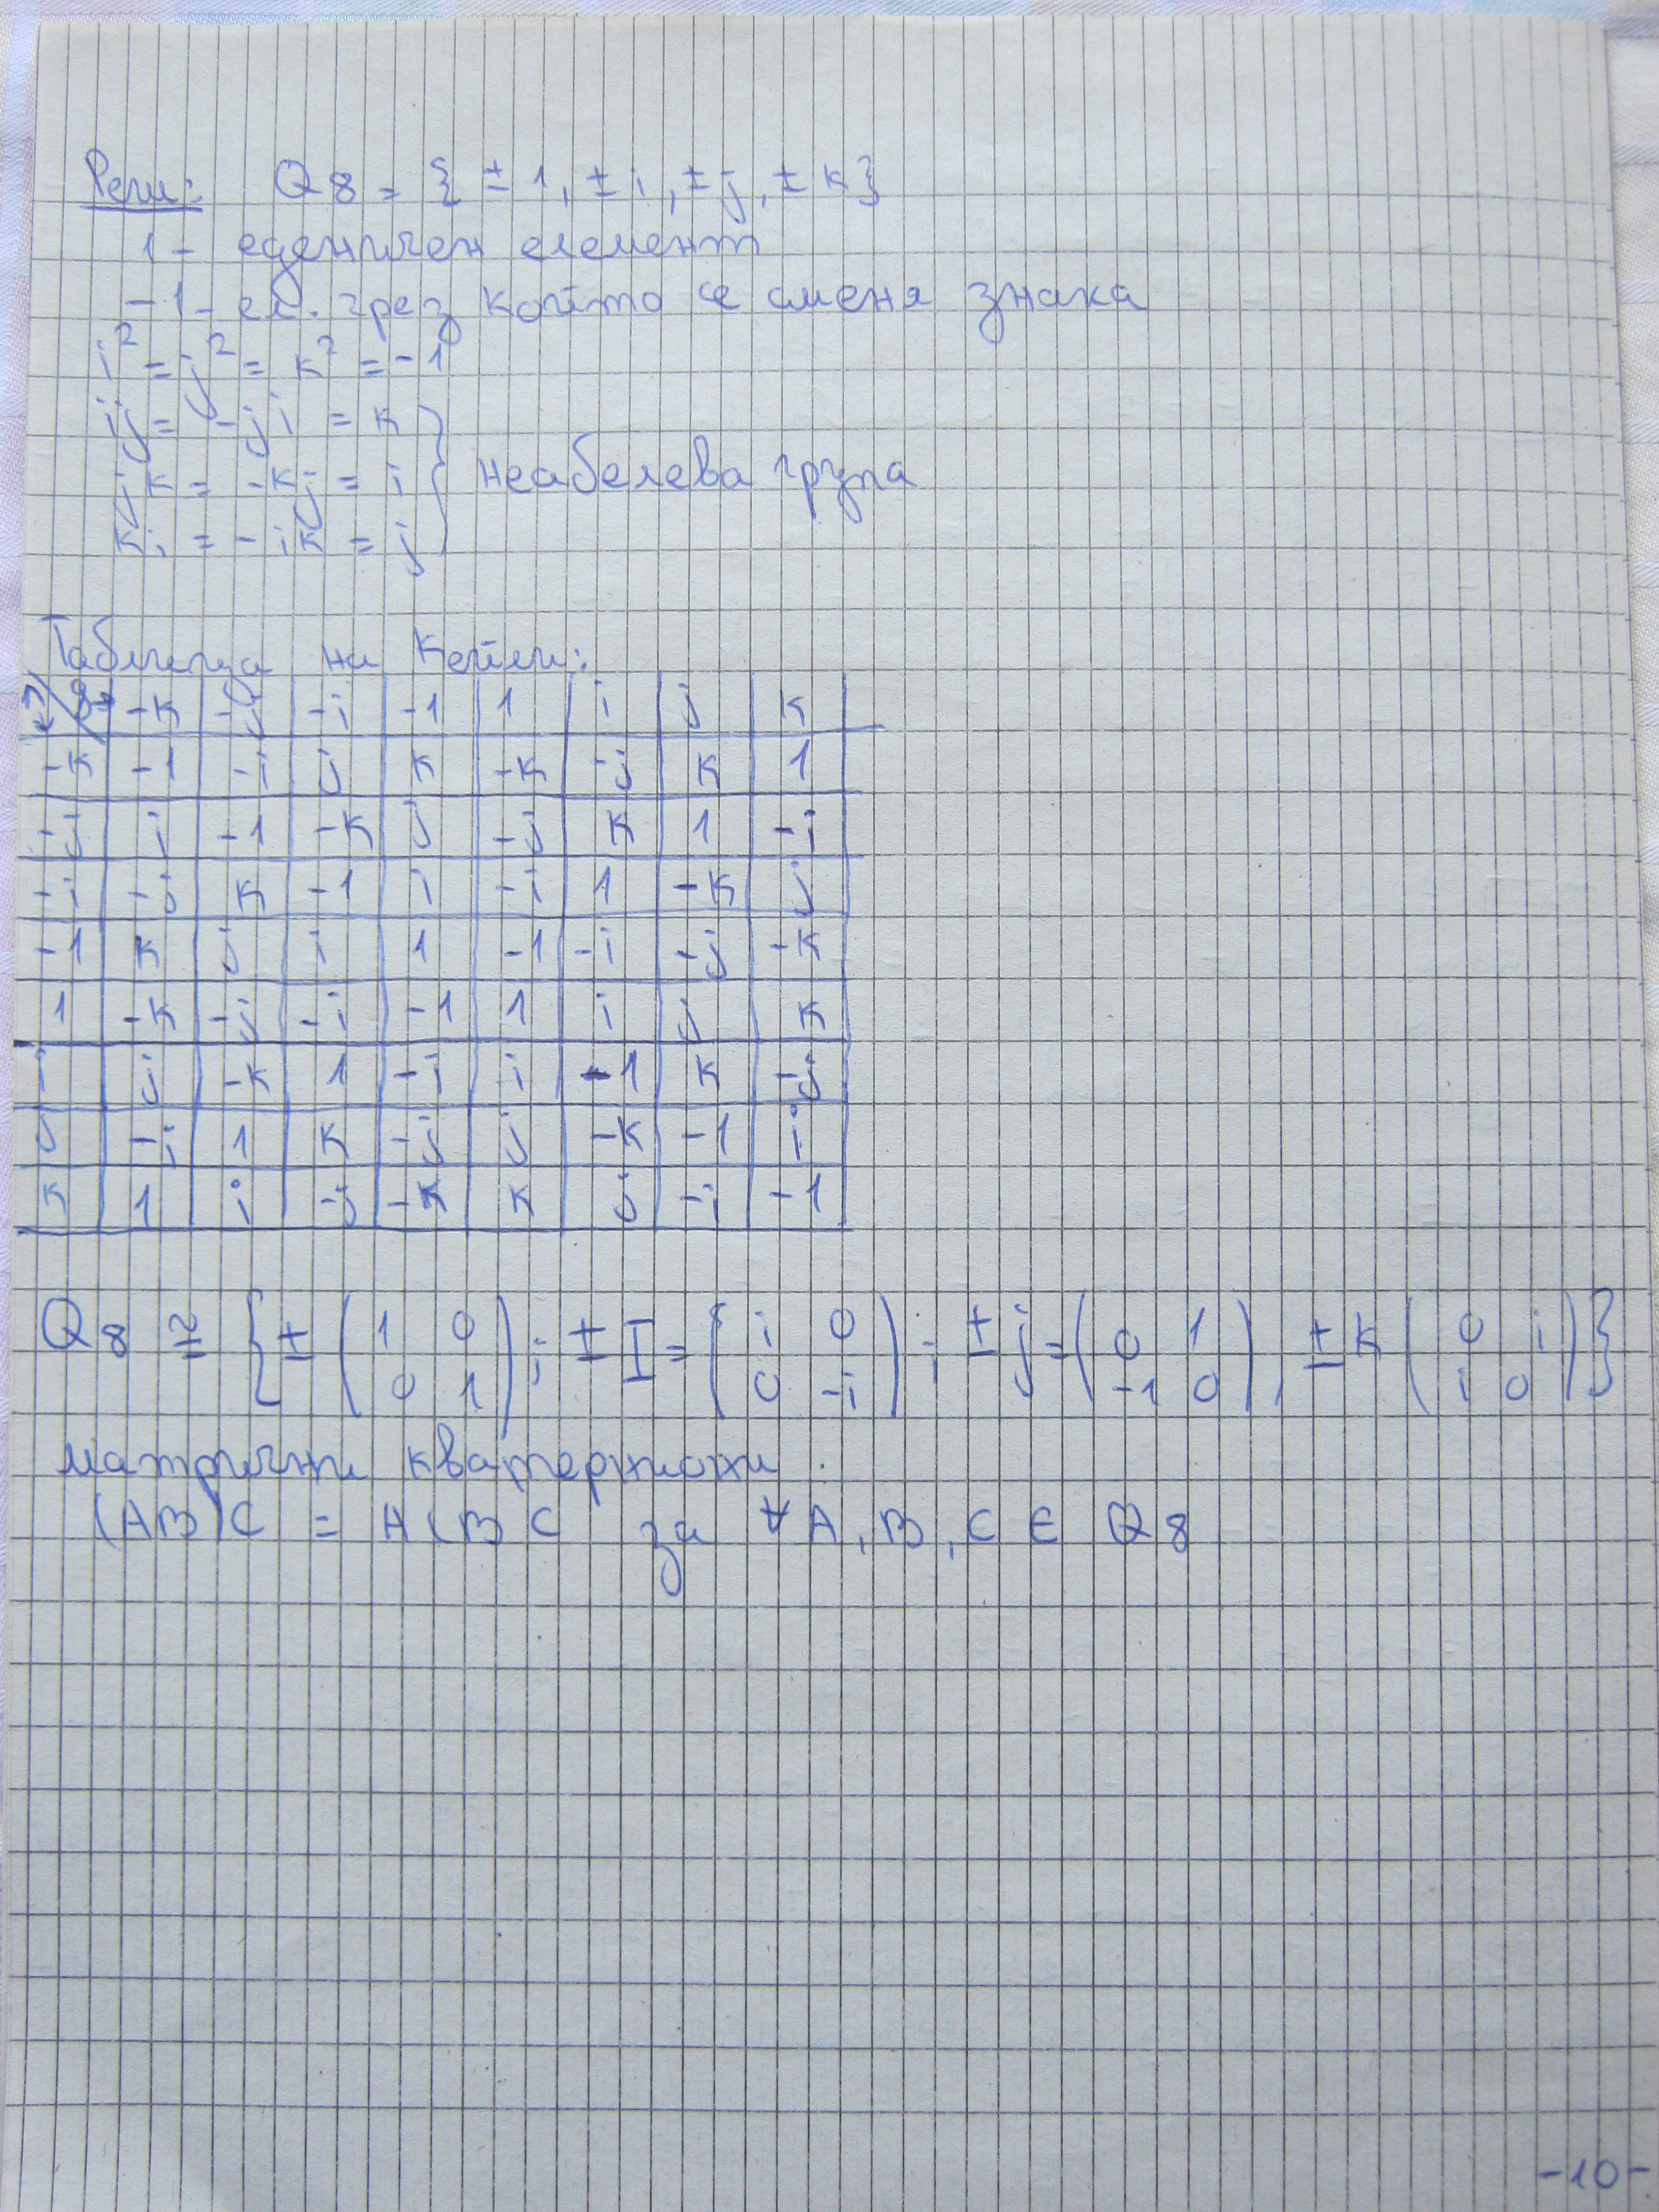 Реш: Q8 = { ± 1, ± i, ± j, ± k}
1 - единичен елемент
-1 - ел. чрез който се сменя знака
i² = j² = k² = -1
ij = -ji = k
jk = -kj = i неабелева група
ki = -ik = j
Таблица на Кейли:
-k -j -i -1 1 i j k
-k -1 -i j k -k -j k 1
-j i -1 -k j -j k 1 -i
-i -j k -1 i -i 1 -k j
-1 k j i 1 -1 -i -j -k
1 -k -j -i -1 1 i j k
i j -k 1 -i i -1 k -j
j -i 1 k -j j -k -1 i
k 1 i -j -k k j -i -1
Q8 ≅ { ± ( 1 0 ; 0 1 ) ; ± I = ( i 0 ; 0 -i ) ; ± j = ( 0 1 ; -1 0 ) , ± k ( 0 i ; i 0 ) }
матрични кватерниони.
(AB)C = A(B C за ∀ A, B, C ∈ Q8
-10-